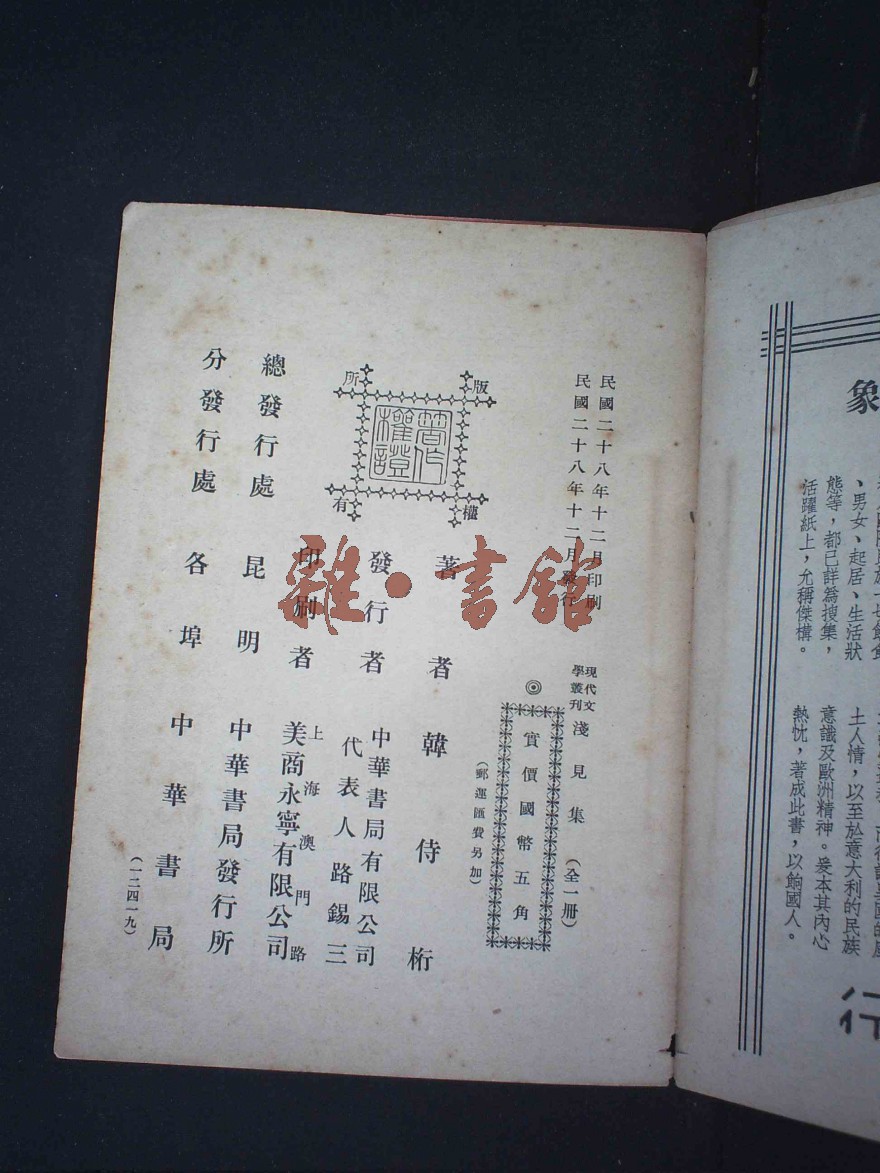 民國二十八年十二月印刷
民國二十八年十二月發行
現代文學叢刊 淺見集（全一冊）
◎實價國幣五角
（郵運匯費另加）
版權所有
著作權證
著者 韓侍桁
發行者 中華書局有限公司
代表人路錫三
印刷者 上海澳門路
美商永寧有限公司
總發行處 昆明 中華書局發行所
分發行處 各埠 中華書局
（一二四一九）
雜·書館
象
、男女、起居、生活狀
態等，都已詳為搜集，
活躍紙上，允稱傑構。
土人情，以至於意大利的民族
意識及歐洲精神。爰本其內心
熱忱，著成此書，以餉國人。
行